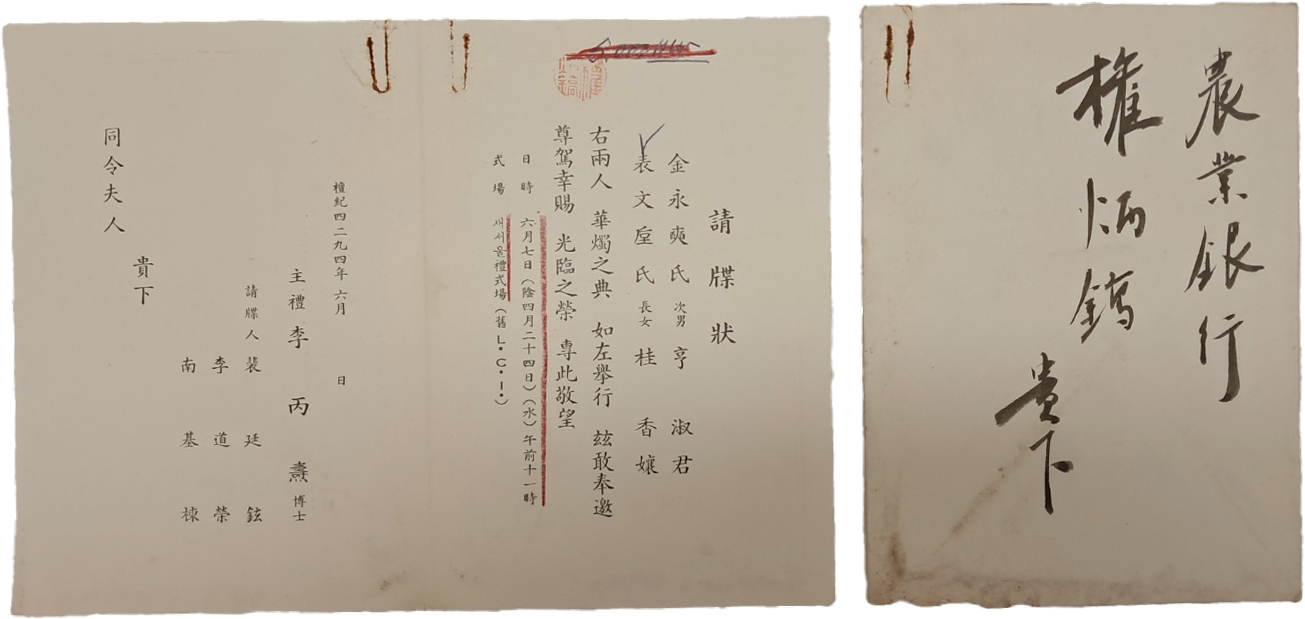 請牒狀
金永奭氏 次男 亨淑君
表文㕓氏 長女 桂香孃
右兩人 華燭之典 如左擧行 玆敢奉邀
尊駕幸賜 光臨之榮 專此敬望
日時 六月七日(陰四月二十四日)(水)午前十一時
式場 새서울禮式場(舊 L·C·I·)
檀紀四二九四年 六月 日
主禮 李丙燾 博士
請牒人 裴廷鉉
李道榮
南基棟
貴下
同令夫人
農業銀行
權炳鎬
貴下